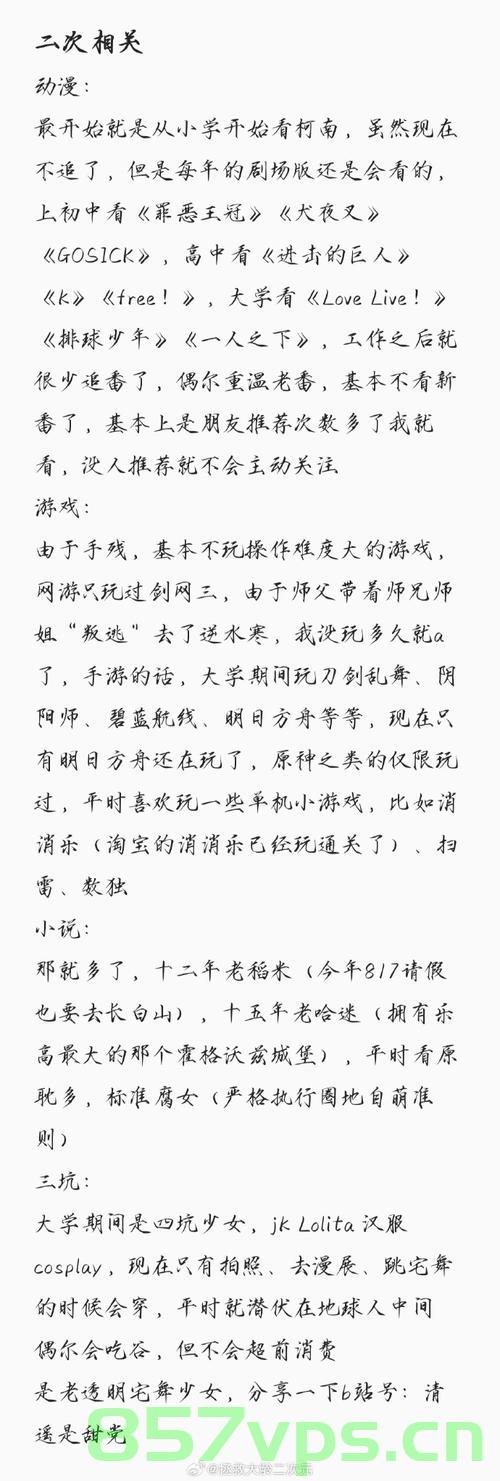 二次相关
动漫：
最开始就是从小学开始看柯南，虽然现在
不追了，但是每年的剧场版还是会看的，
上初中看《罪恶王冠》《犬夜叉》
《GOSICK》，高中看《进击的巨人》
《K》《free！》，大学看《Love Live！》
《排球少年》《一人之下》，工作之后就
很少追番了，偶尔重温老番，基本不看新
番了，基本上是朋友推荐次数多了我就
看，没人推荐就不会主动关注
游戏：
由于手残，基本不玩操作难度大的游戏，
网游只玩过剑网三，由于师父带着师兄师
姐“叛逃”去了逆水寒，我没玩多久就a
了，手游的话，大学期间玩刀剑乱舞、阴
阳师、碧蓝航线、明日方舟等等，现在只
有明日方舟还在玩了，原神之类的仅限玩
过，平时喜欢玩一些单机小游戏，比如消
消乐（淘宝的消消乐已经玩通关了）、扫
雷、数独
小说：
那就多了，十二年老稻米（今年817请假
也要去长白山），十五年老哈迷（拥有乐
高最大的那个霍格沃兹城堡），平时看原
耽多，标准腐女（严格执行圈地自萌准
则）
三坑：
大学期间是四坑少女，jk Lolita 汉服
cosplay，现在只有拍照、去漫展、跳宅舞
的时候会穿，平时就潜伏在地球人中间
偶尔会吃谷，但不会超前消费
是老透明宅舞少女，分享一下b站号：清
遥是甜党
857vps.cn
@拯救大龄二次元